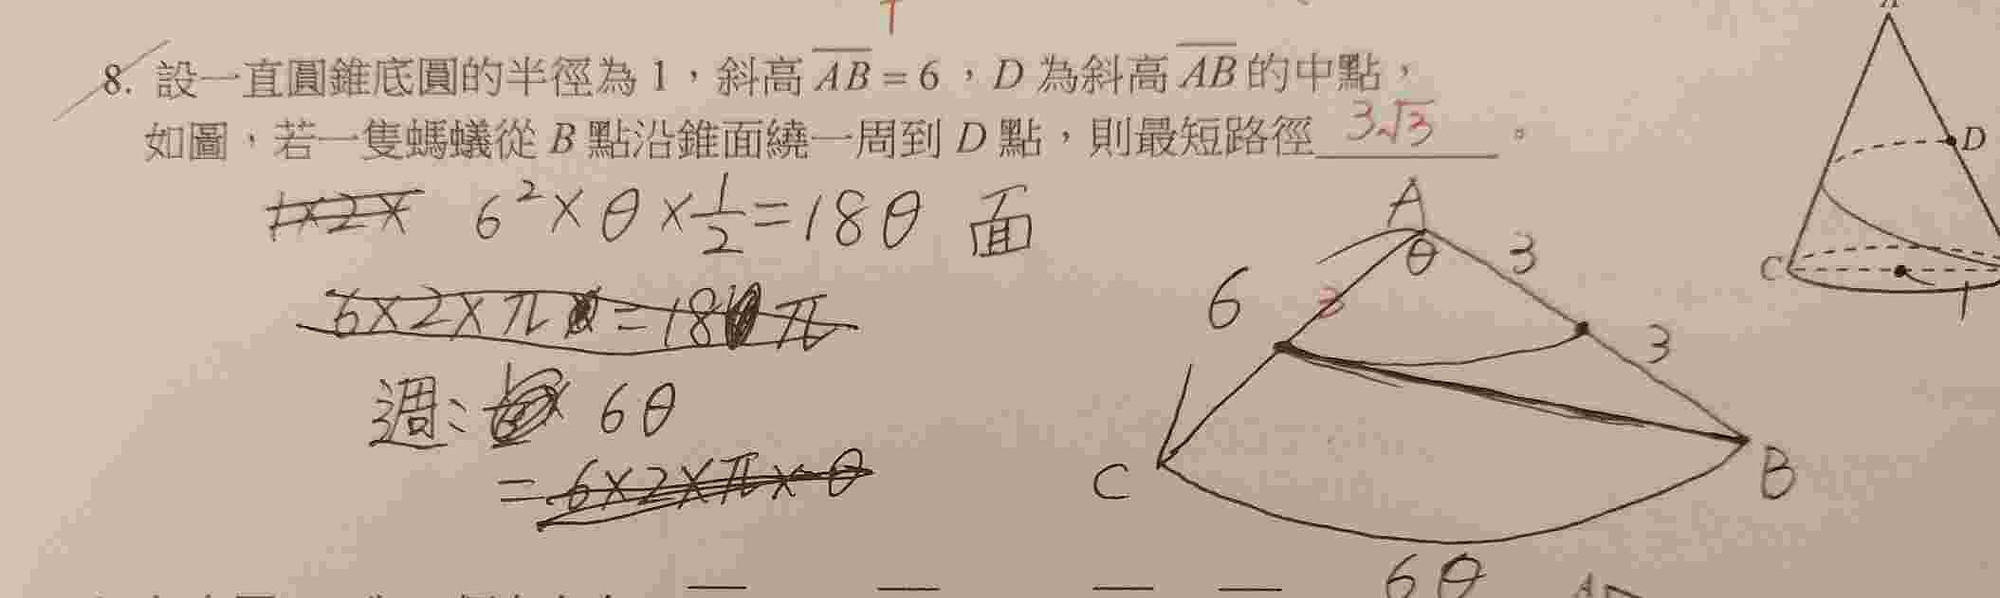 8. 設一直圓錐底圓的半徑為 1，斜高 AB = 6，D 為斜高 AB 的中點，
如圖，若一隻螞蟻從 B 點沿錐面繞一周到 D 點，則最短路徑 3√3 。
1×2×  6²×θ×1/2=18θ 面
6×2×π
週: 6θ
= 6×2×π×θ
A
θ
3
6
3
3
C
B
6θ
D
C
1